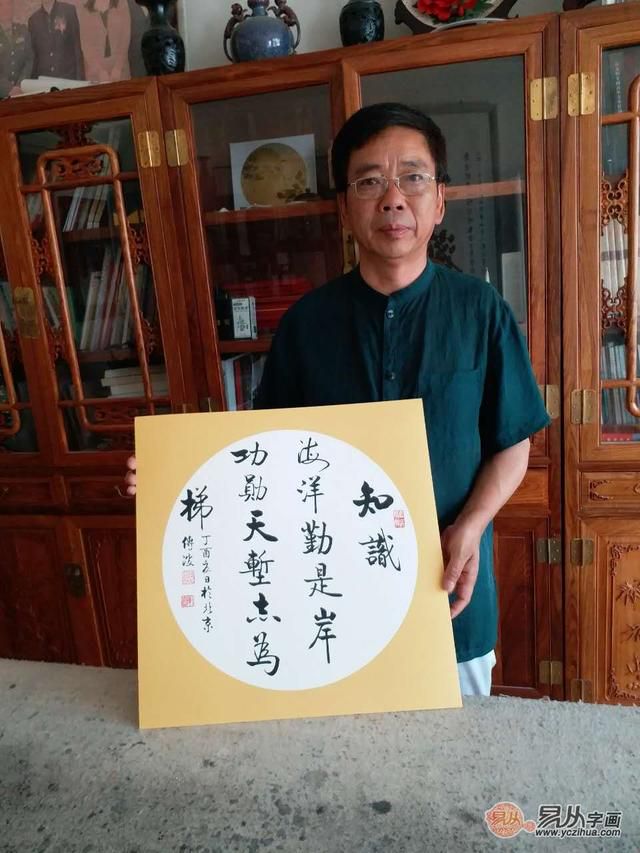 知識
海洋勤是岸
功勋天塹志為
梯
丁酉夏日於北京
波
易从
易从字画
www.yczihua.com